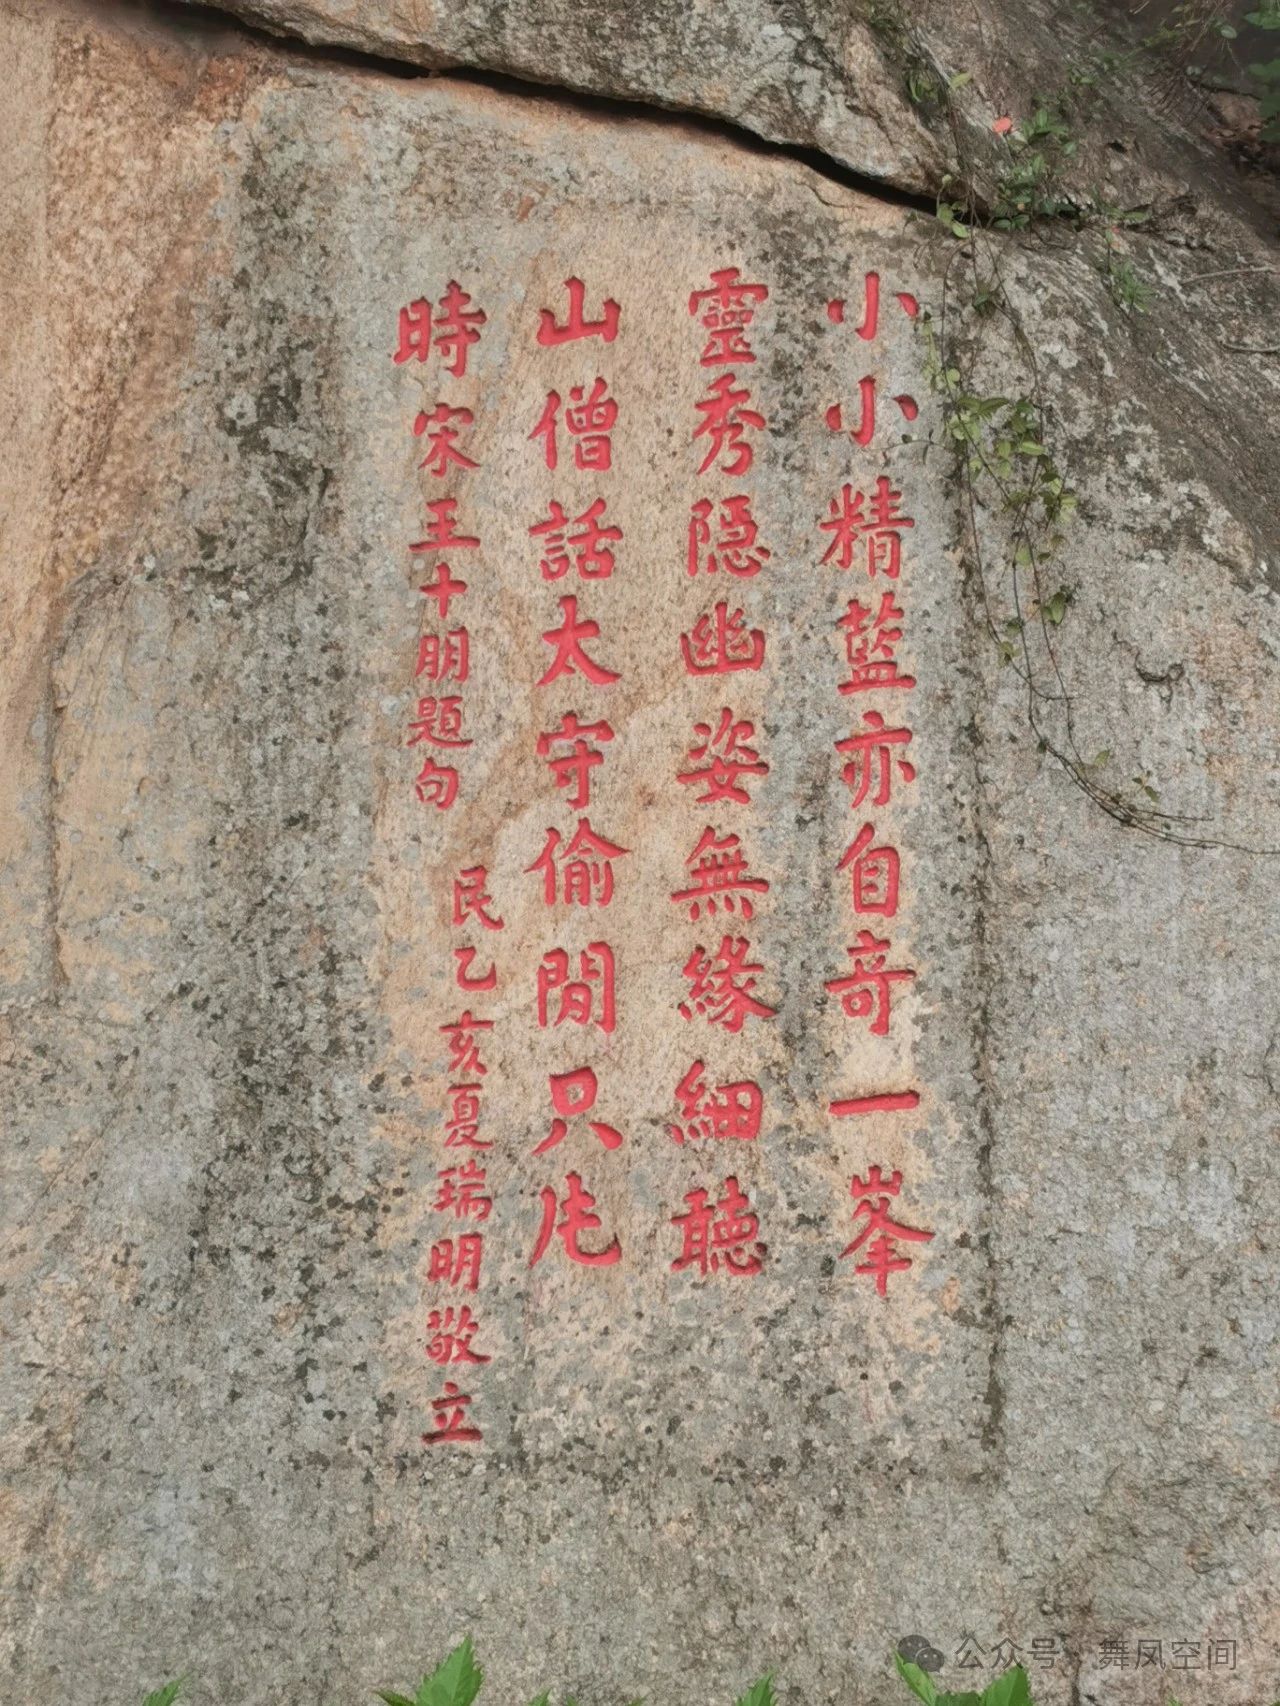 小小精藍亦自竒一峯
靈秀隐幽姿無緣細聽
山僧話太守偷閒只片
時宋王十朋題句
民乙亥夏瑞明敬立
公众号·舞凤空间